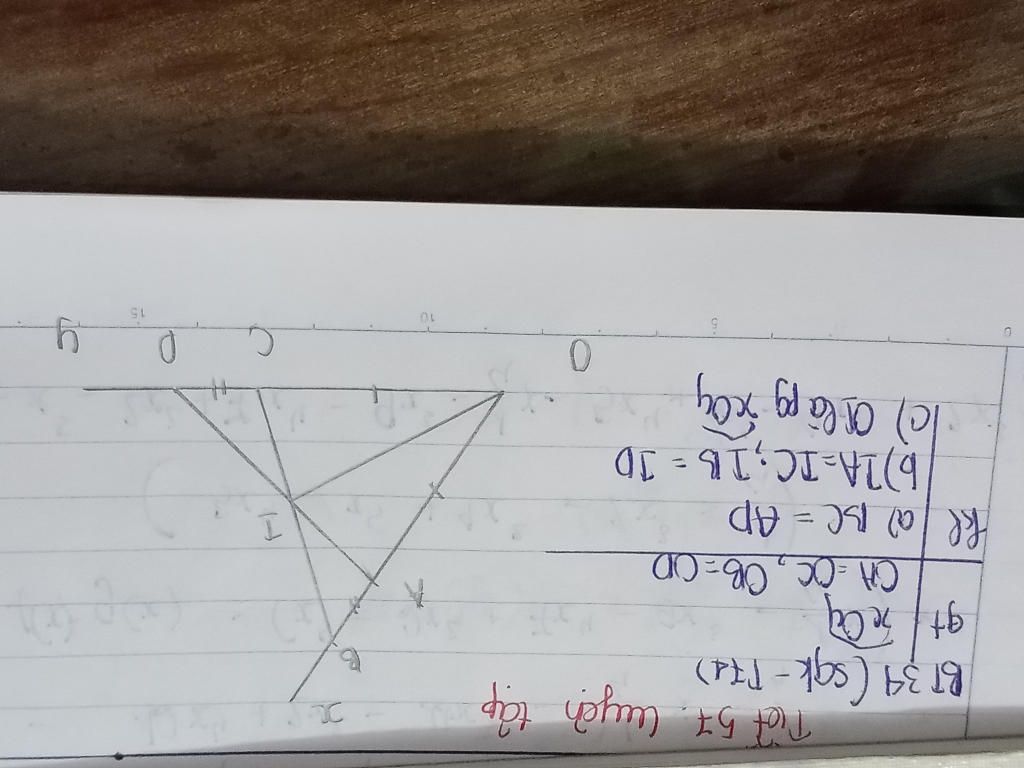 Tiết 57 luyện tập
BT 34 (SGK - T71)
gt xOy
OA = OC, OB = OD
kl a) BC = AD
b) IA = IC; IB = ID
c) OI là pg xOy
x
B
A
I
O
C
D
y
0 5 10 15